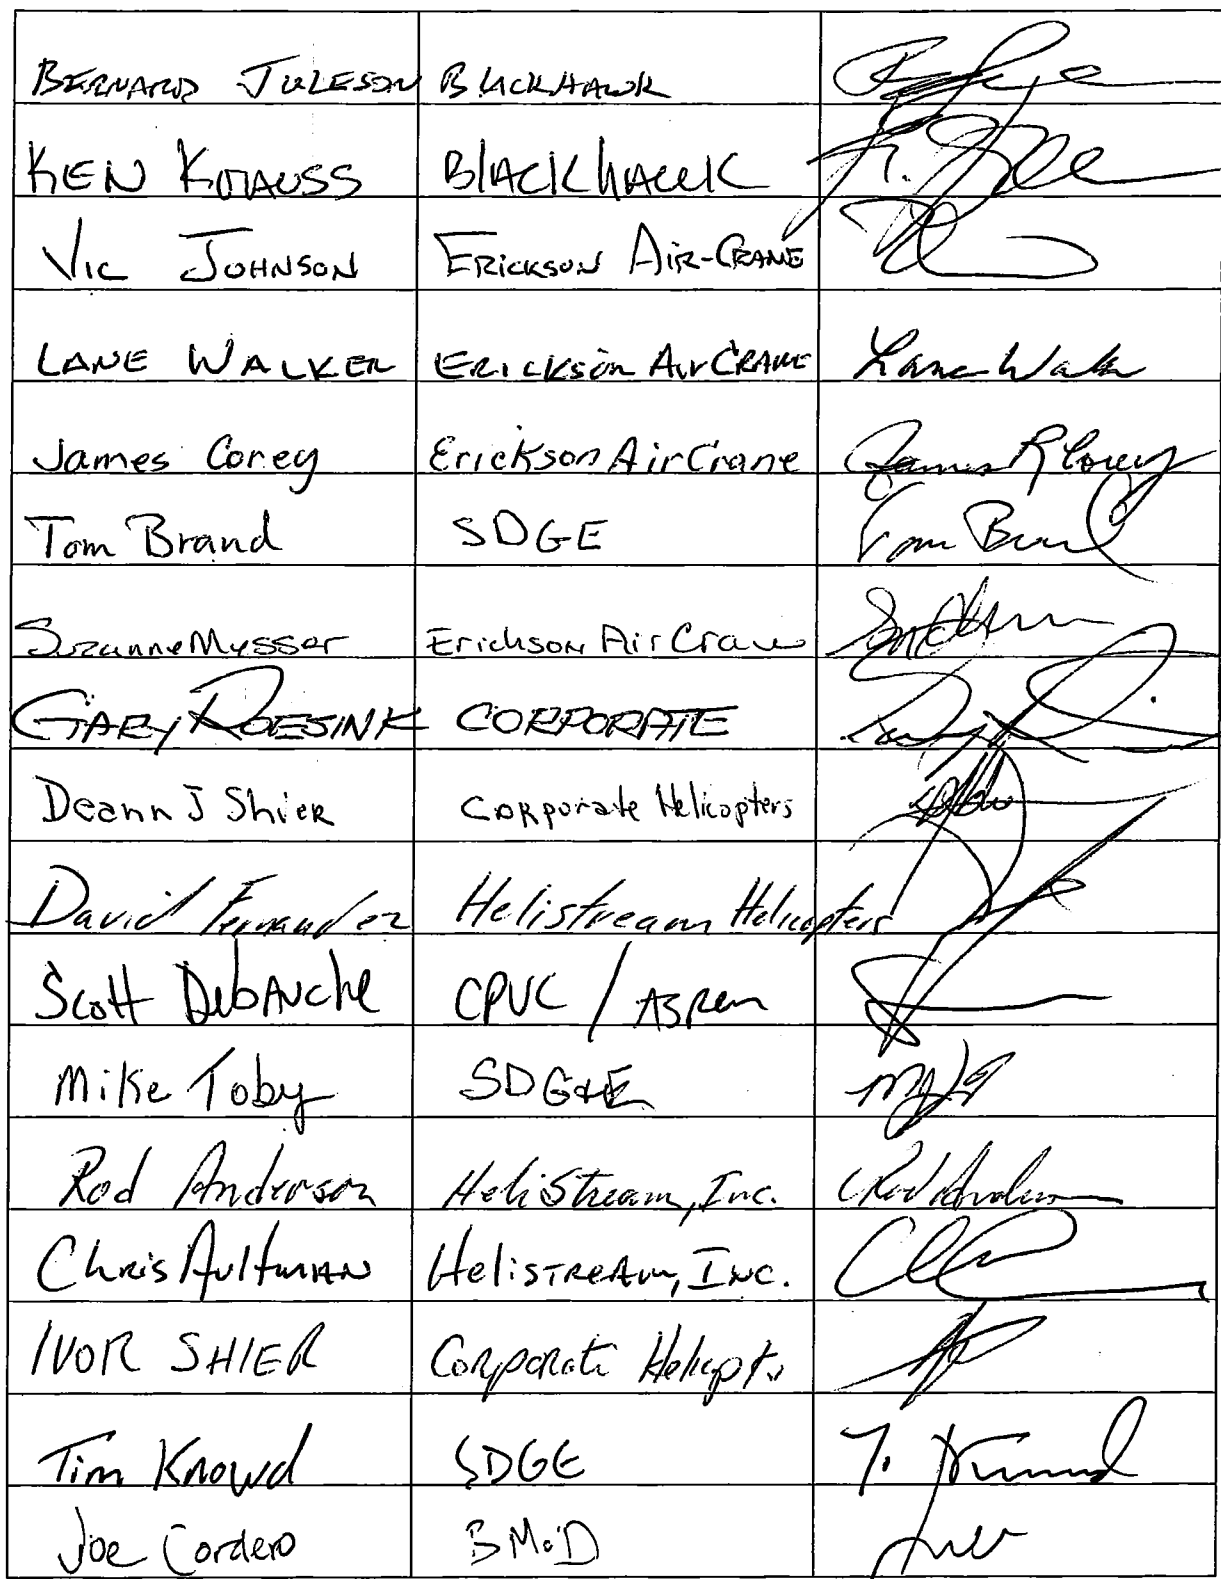 BERNARD JULESON BLACKHAWK
KEN KRAUSS BlACKHAWK
VIC JOHNSON ERICKSON AIR-CRANE
LANE WALKER ERICKSON AirCRANE Lane Walk
James Corey Erickson AirCrane James R Corey
Tom Brand SDGE Tom Brand
Suzanne Musser Erickson Air Crane
GARY ROESINK CORPORATE
Deann J Shier Corporate Helicopters
David Fernandez Helistream Helicopters
Scott DebAuche CPUC / Aspen
Mike Toby SDG&E
Rod Anderson HeliStream, Inc. Rod Anderson
Chris Aultman Helistream, Inc.
IVOR SHIER Corporate Helicopt.
Tim Knowd SDGE T. Knowd
Joe Cordero